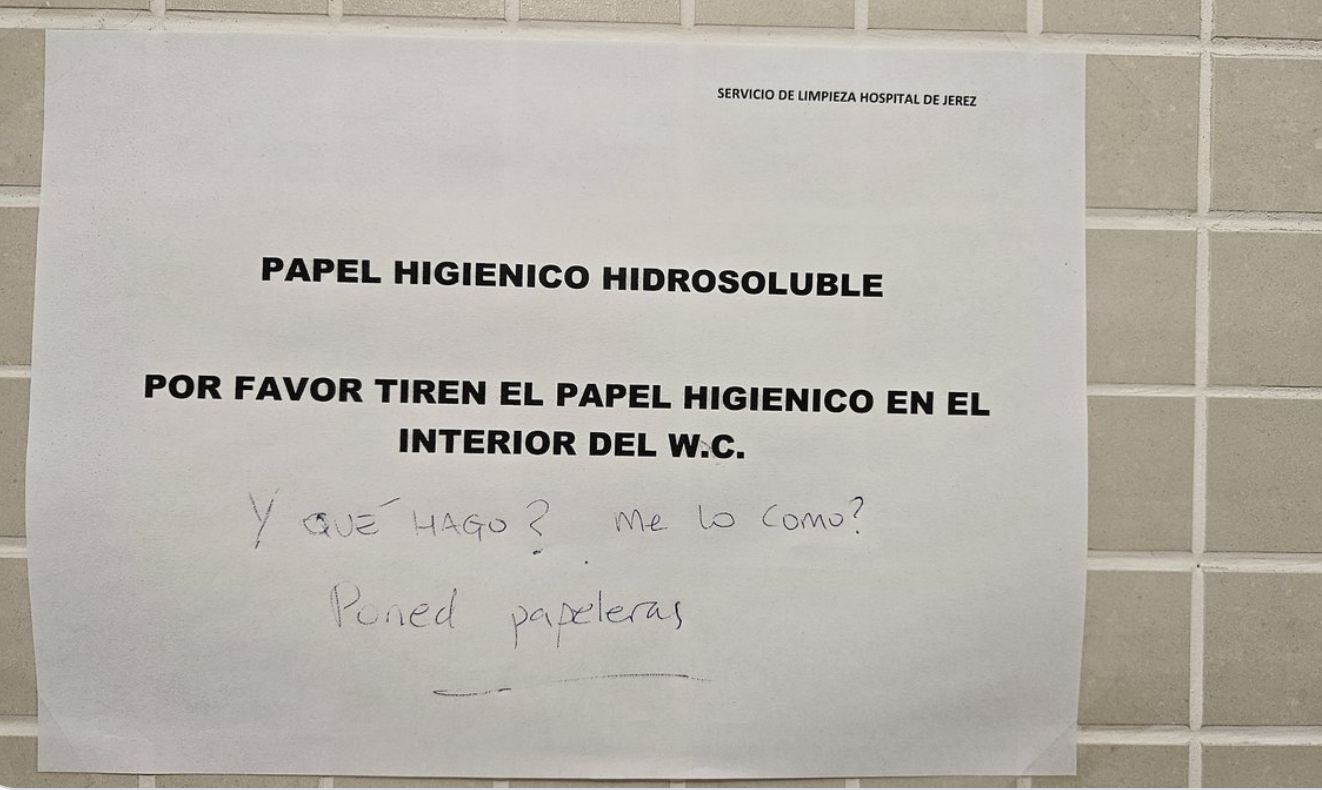 SERVICIO DE LIMPIEZA HOSPITAL DE JEREZ
PAPEL HIGIENICO HIDROSOLUBLE
POR FAVOR TIREN EL PAPEL HIGIENICO EN EL
INTERIOR DEL W.C.
Y QUÉ HAGO? Me lo como?
Poned papeleras